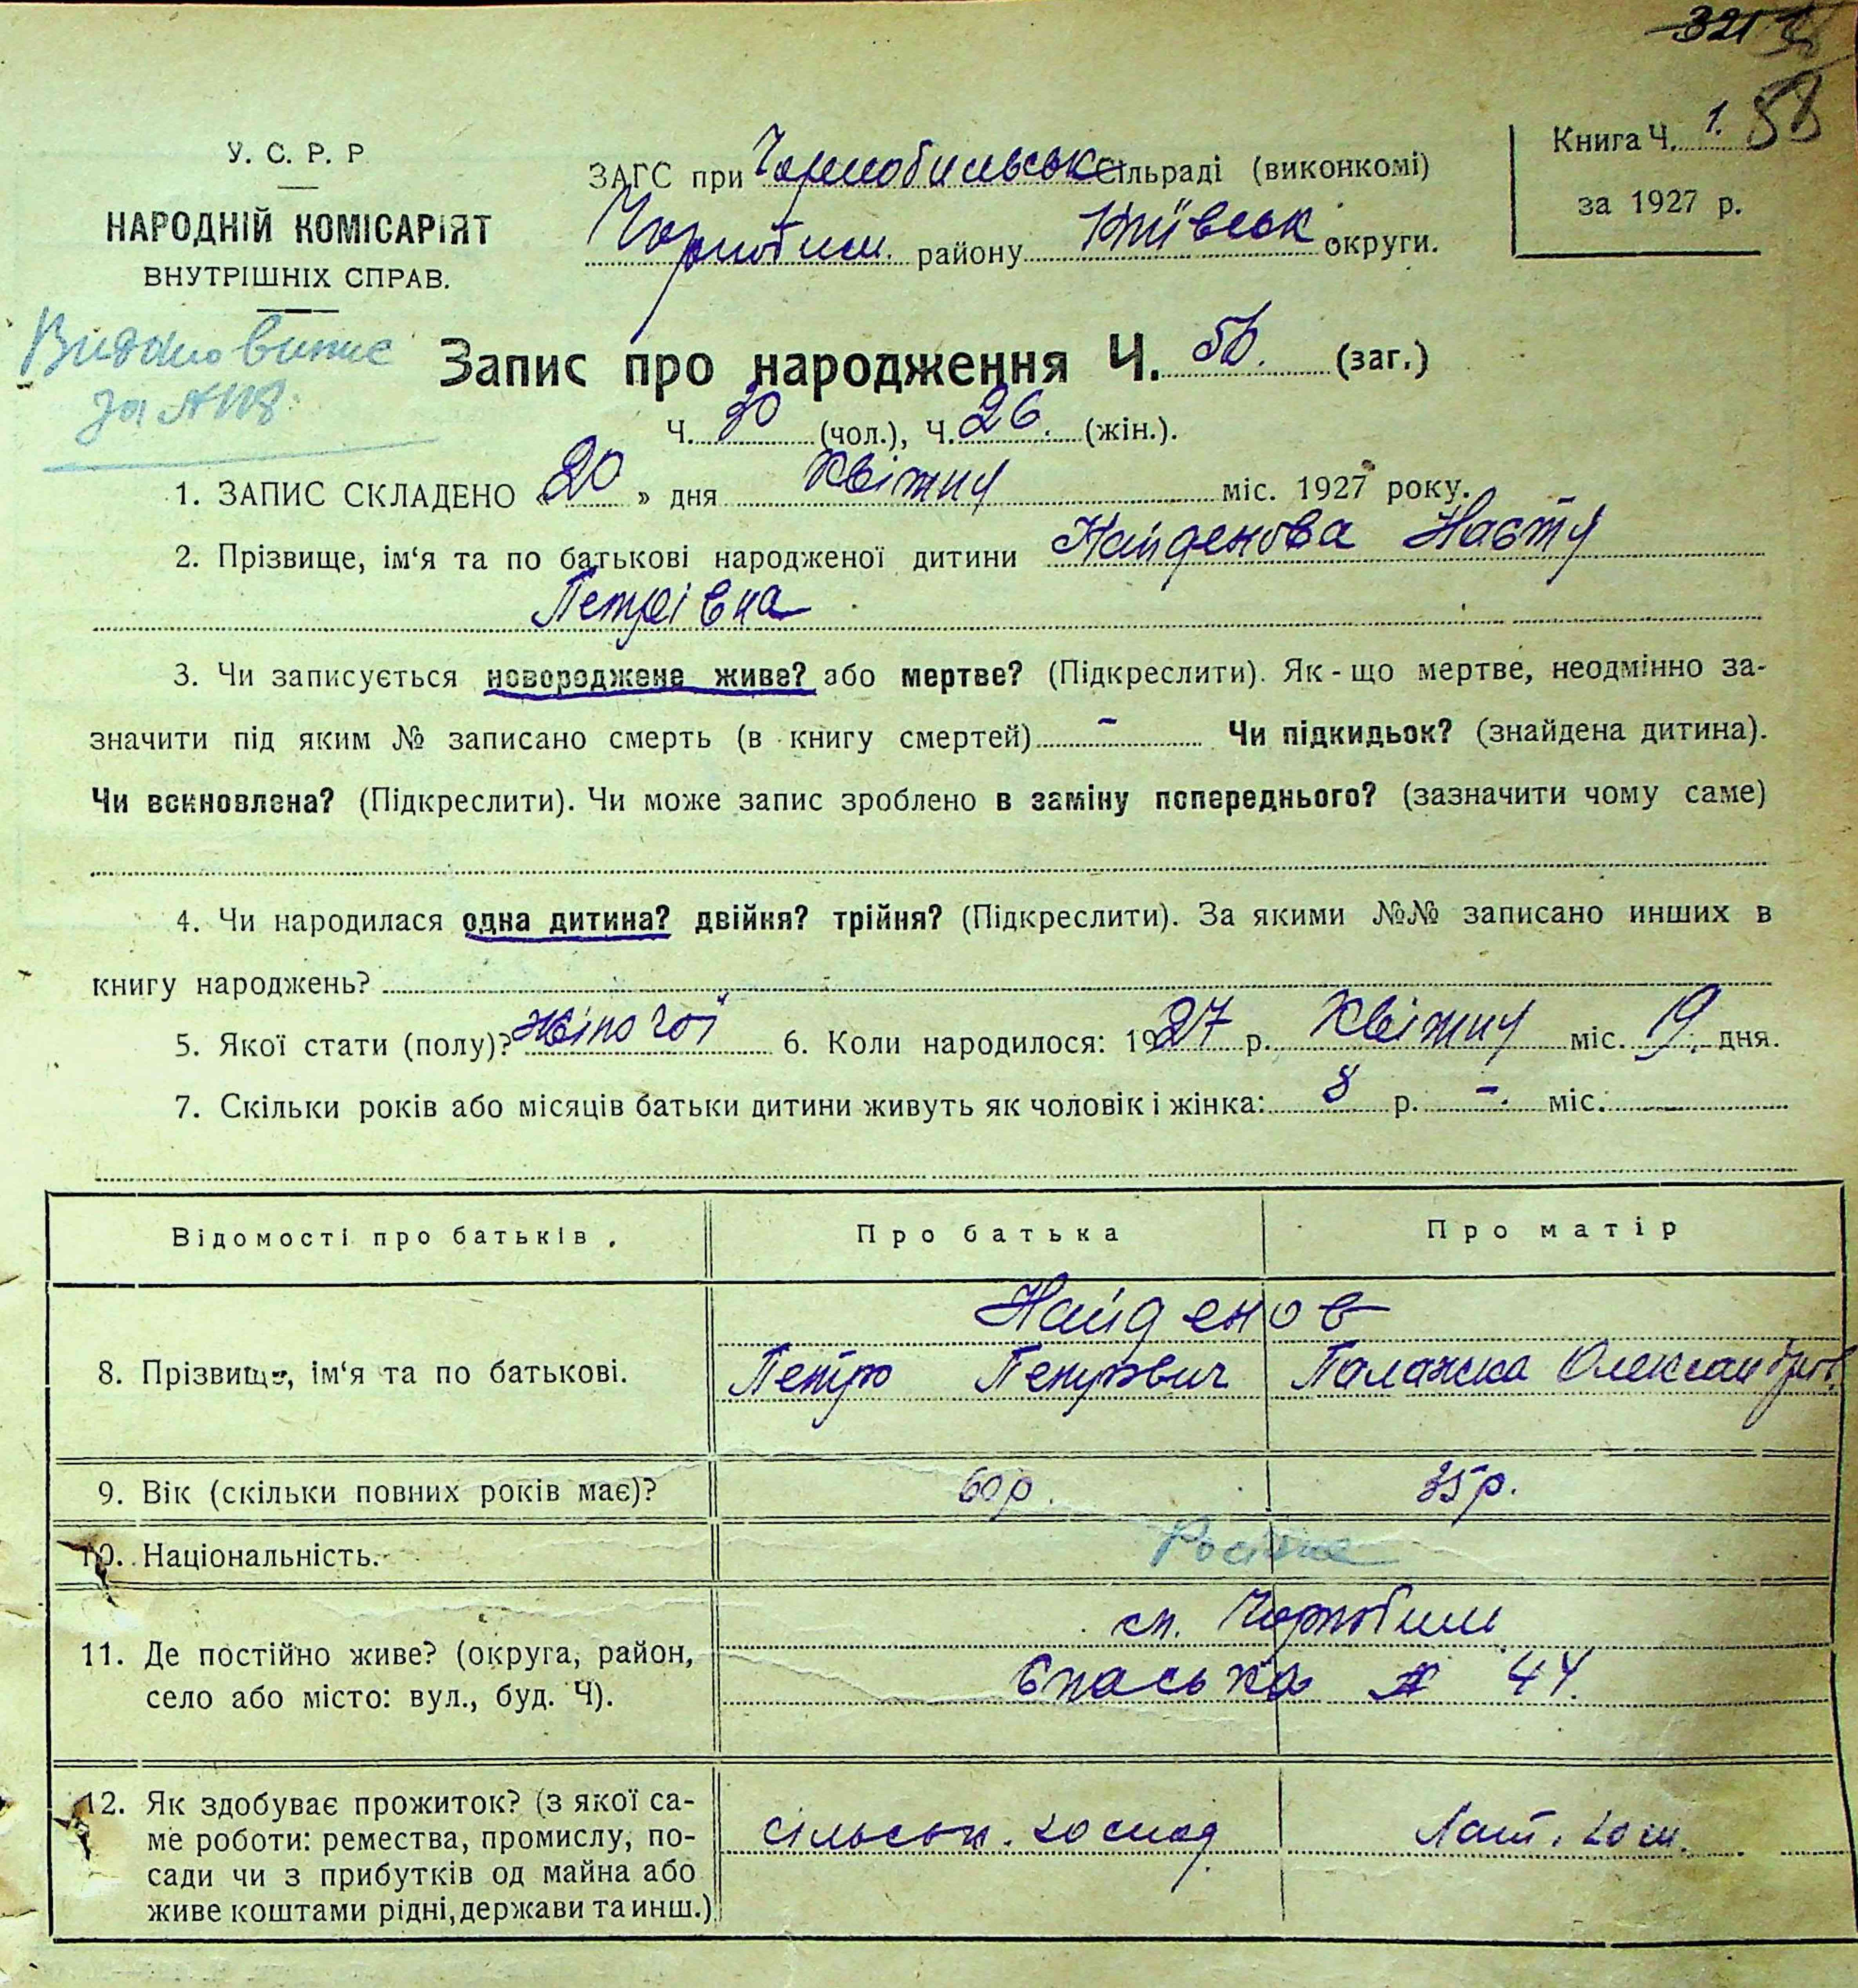 321
58
У. С. Р. Р
НАРОДНІЙ КОМІСАРІЯТ
ВНУТРІШНІХ СПРАВ.
ЗАГС при Чорнобильськ сільраді (виконкомі)
Чорнобил. району Київськ округи.
Книга Ч. 1.
за 1927 р.
Видано випис
за №118.
Запис про народження Ч. 56. (заг.)
Ч. 30 (чол.), Ч. 26. (жін.).
1. ЗАПИС СКЛАДЕНО « 20 » дня Квітня міс. 1927 року.
2. Прізвище, ім‘я та по батькові народженої дитини Найденова Настя
Петрівна
3. Чи записується новороджене живе? або мертве? (Підкреслити). Як-що мертве, неодмінно за-
значити під яким № записано смерть (в книгу смертей) - Чи підкидьок? (знайдена дитина).
Чи вскновлена? (Підкреслити). Чи може запис зроблено в заміну попереднього? (зазначити чому саме)
4. Чи народилася одна дитина? двійня? трійня? (Підкреслити). За якими №№ записано инших в
книгу народжень?
5. Якої стати (полу)? Жіночої 6. Коли народилося: 1927 р. Квітня міс. 19. дня.
7. Скільки років або місяців батьки дитини живуть як чоловік і жінка: 8 р. -. міс.
Відомості про батьків. Про батька Про матір
Найденов
8. Прізвище, ім‘я та по батькові. Петро Петрович Палажка Олександров.
9. Вік (скільки повних років має)? 60 р. 35 р.
10. Національність. Росіяне
11. Де постійно живе? (округа, район,
село або місто: вул., буд. Ч).
м. Чорнобиль
Спаська № 44.
12. Як здобуває прожиток? (з якої са-
ме роботи: ремества, промислу, по-
сади чи з прибутків од майна або
живе коштами рідні, держави та инш.)
сільськ. господ.